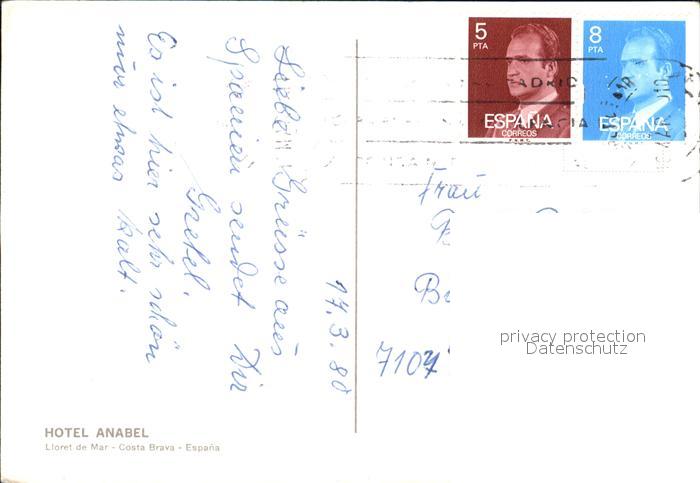 5
PTA
ESPAÑA
CORREOS
8
PTA
ESPAÑA
CORREOS
MADRID
Liebe Grüsse aus
Spanien sendet Dir
Gretel.
Es ist hier sehr schön
nur etwas kalt.
17.3.80
Frau
7104
privacy protection
Datenschutz
HOTEL ANABEL
Lloret de Mar - Costa Brava - España